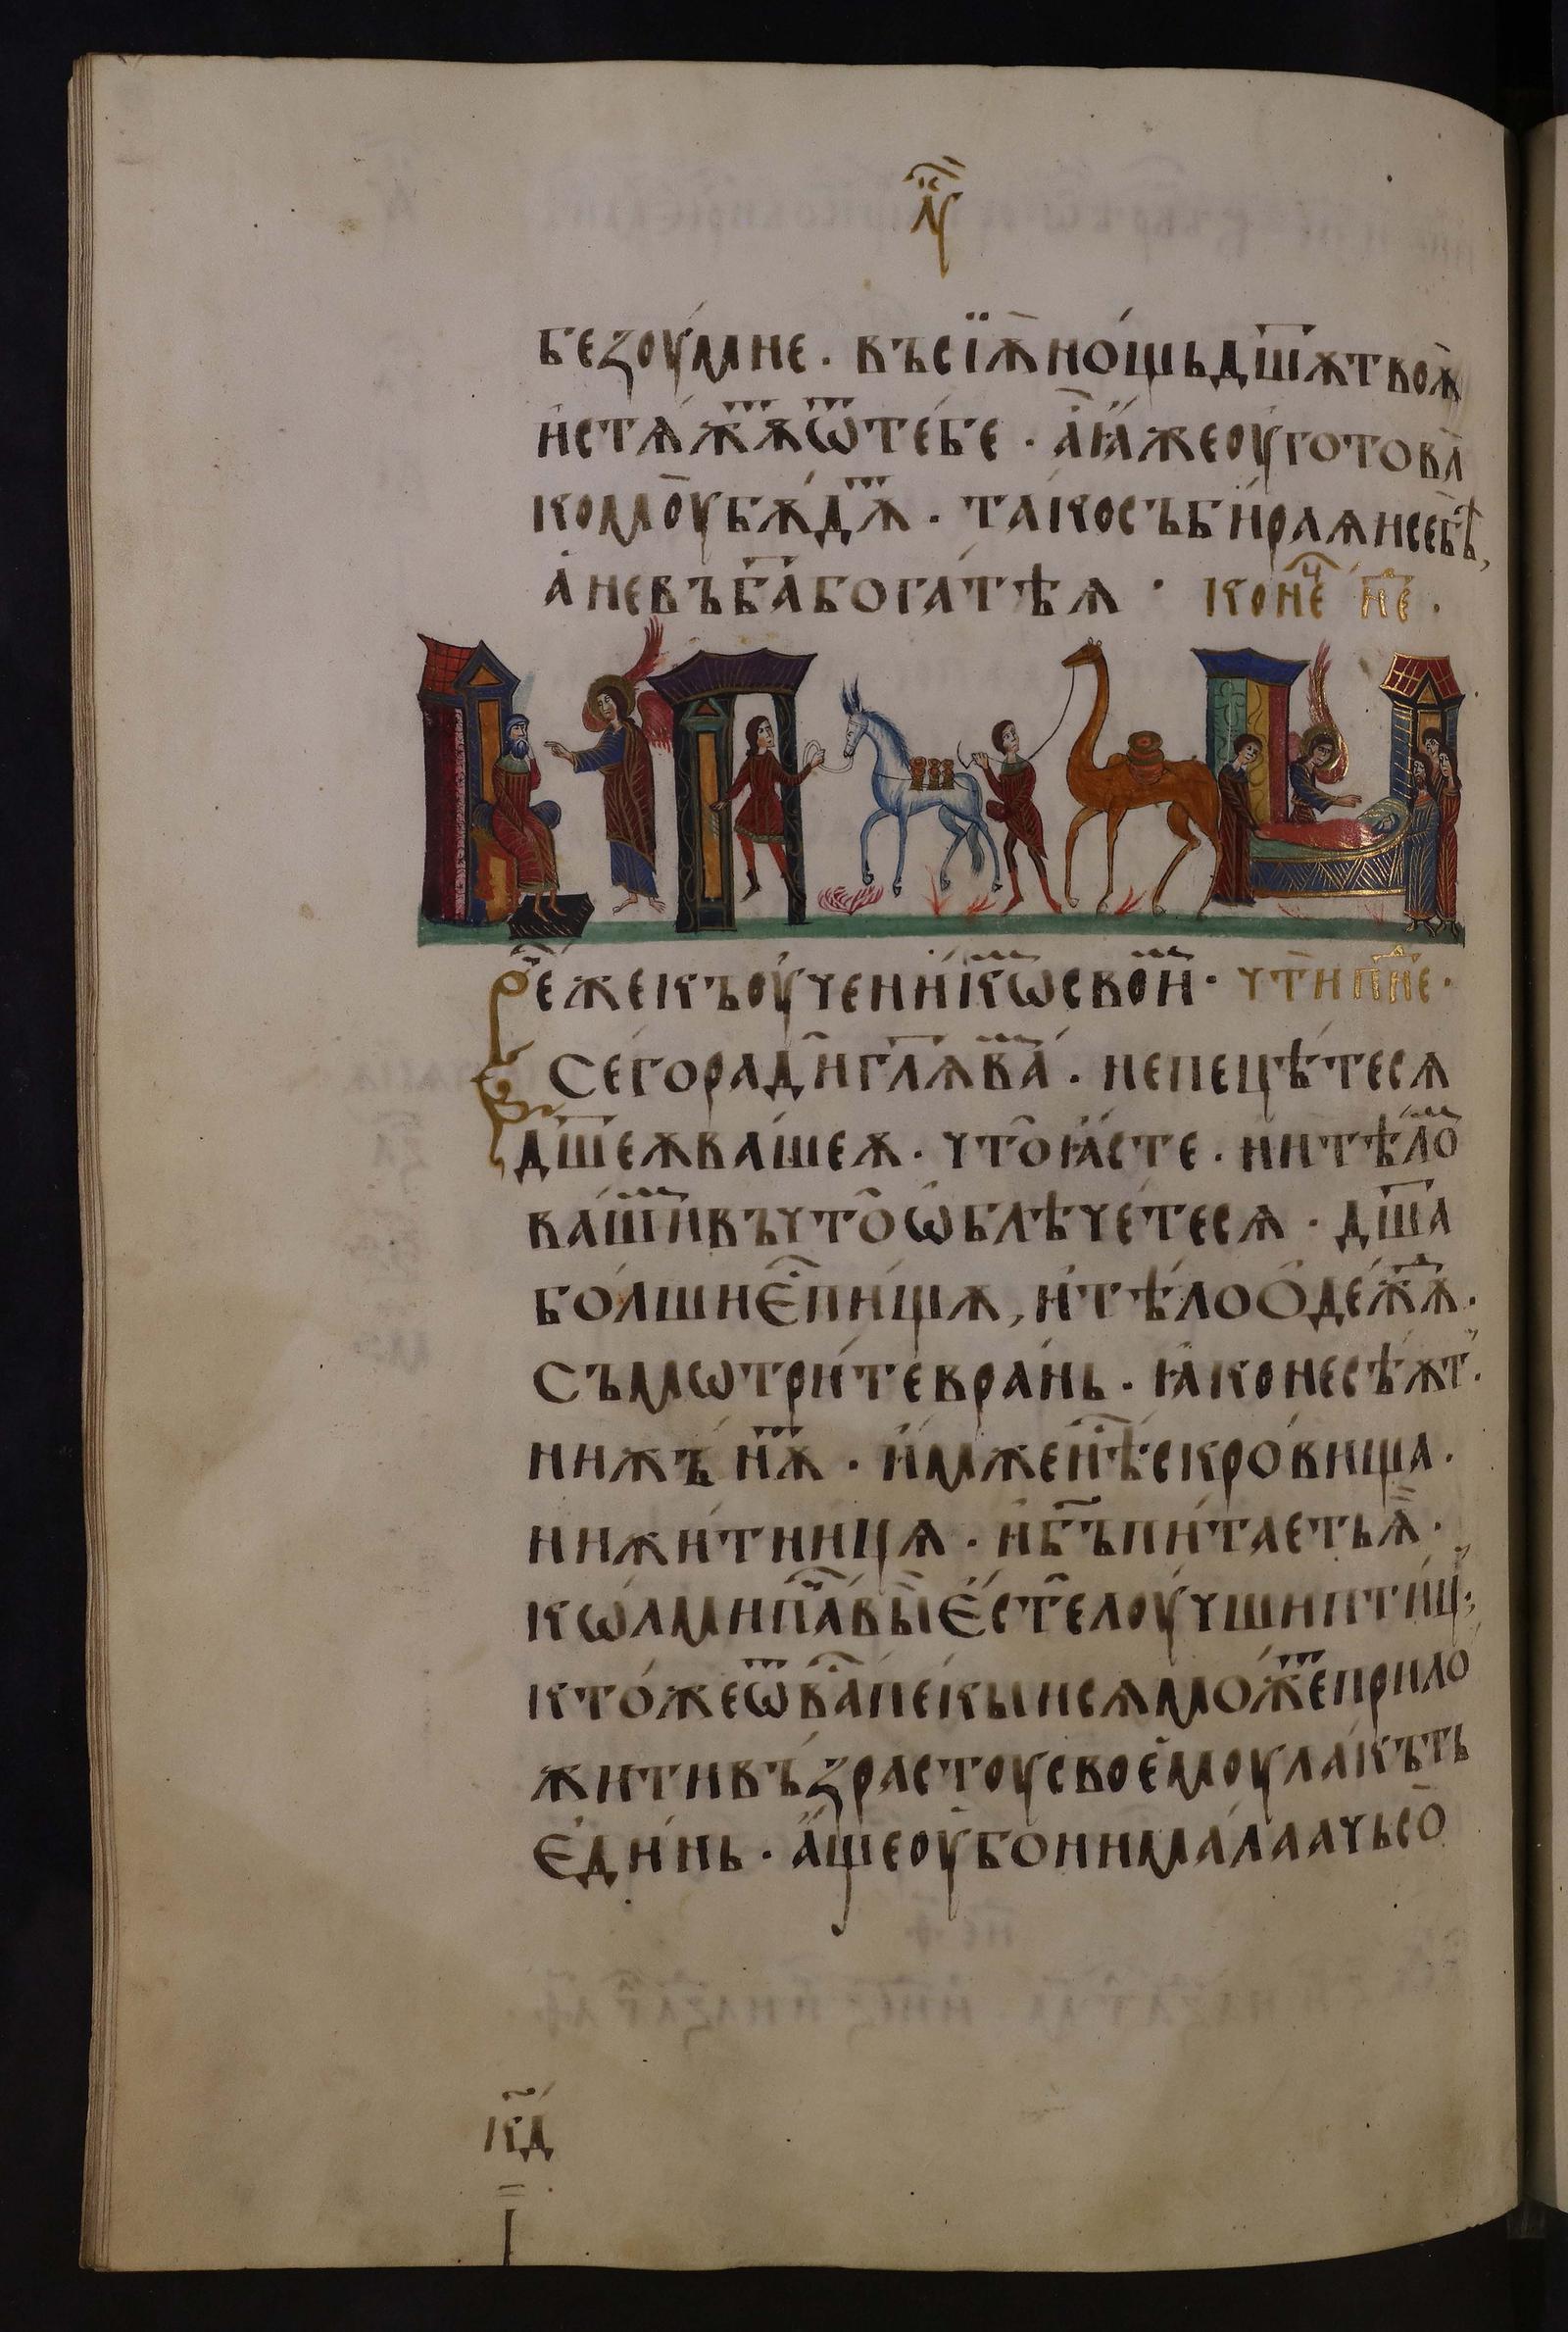 безоумне · въсїѫнощьдш҃ѫтвоѫ
истѧжѫѿтебе · аꙗжеоуготова
комоубѫдѫ · такосъбираѧисебѣ,
аневъба҃богатѣѧ · конеч не҃ ·
режекъоученикѡсвои · чтипн҃е ·
Сегорадигл҃ѧва · непецѣтесѧ
дш҃еѫвашеѫ · чтоꙗсте · нитѣло
вашивъчтоѡблѣчетесѧ · дш҃а
болшиѐпищѧ, итѣлоодежѫ ·
съмѡтритевранъ · ꙗконесѣѫт ·
нижънѫ · имженѣскровища ·
нижитницѧ · иб҃ъпитаетьѧ ·
кѡлмипавыестелоучшиптиц ·
ктожеѿвапекыисѧможеприло
житивъзрастоусвоемоулакъть
единь · ащеоубонималаачьсо
кд҃